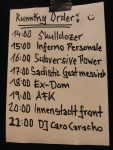 Running Order:
14:00 Skulldozer
15:00 Inferno Personale
16:00 Subversive Power
17:00 Sadistic Goatmessiah
18:00 Ex-Dom
19:00 AFK
20:00 Innenstadtfront
22:00 DJ Caro Caracho